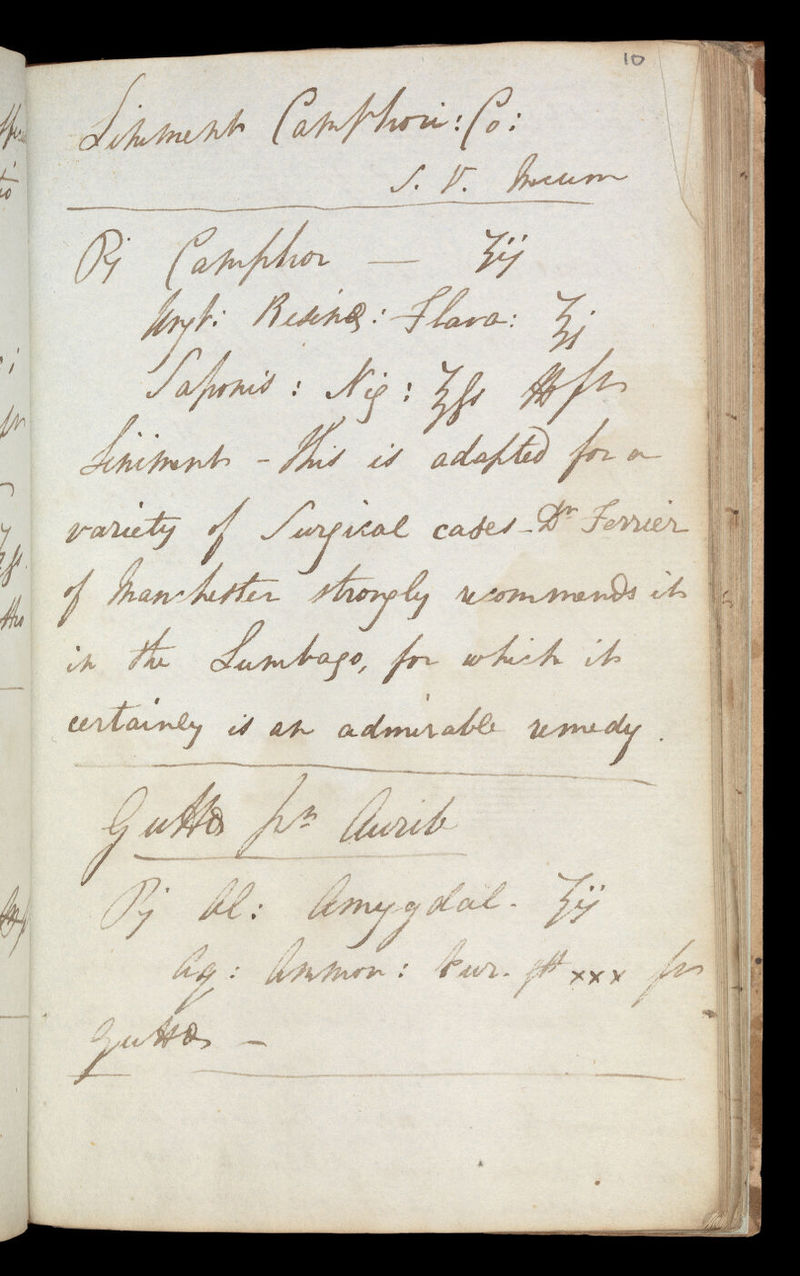 10
Liniment Camphori: Co:
S. V. Mecum
℞ Camphor — ʒij
Ungt: Resinæ: Flava: ℥j
Saponis: Nig: ℥fs ft
Liniment - This is adapted for a
variety of Surgical cases - Dr Ferrier
of Manchester strongly recommends it
in the Lumbago, for which it
certainly is an admirable remedy.
Guttæ pr Aurib
℞ Ol: Amygdal. ʒij
Aq: Ammon: Pur. gtt xxx ft
Guttæ -